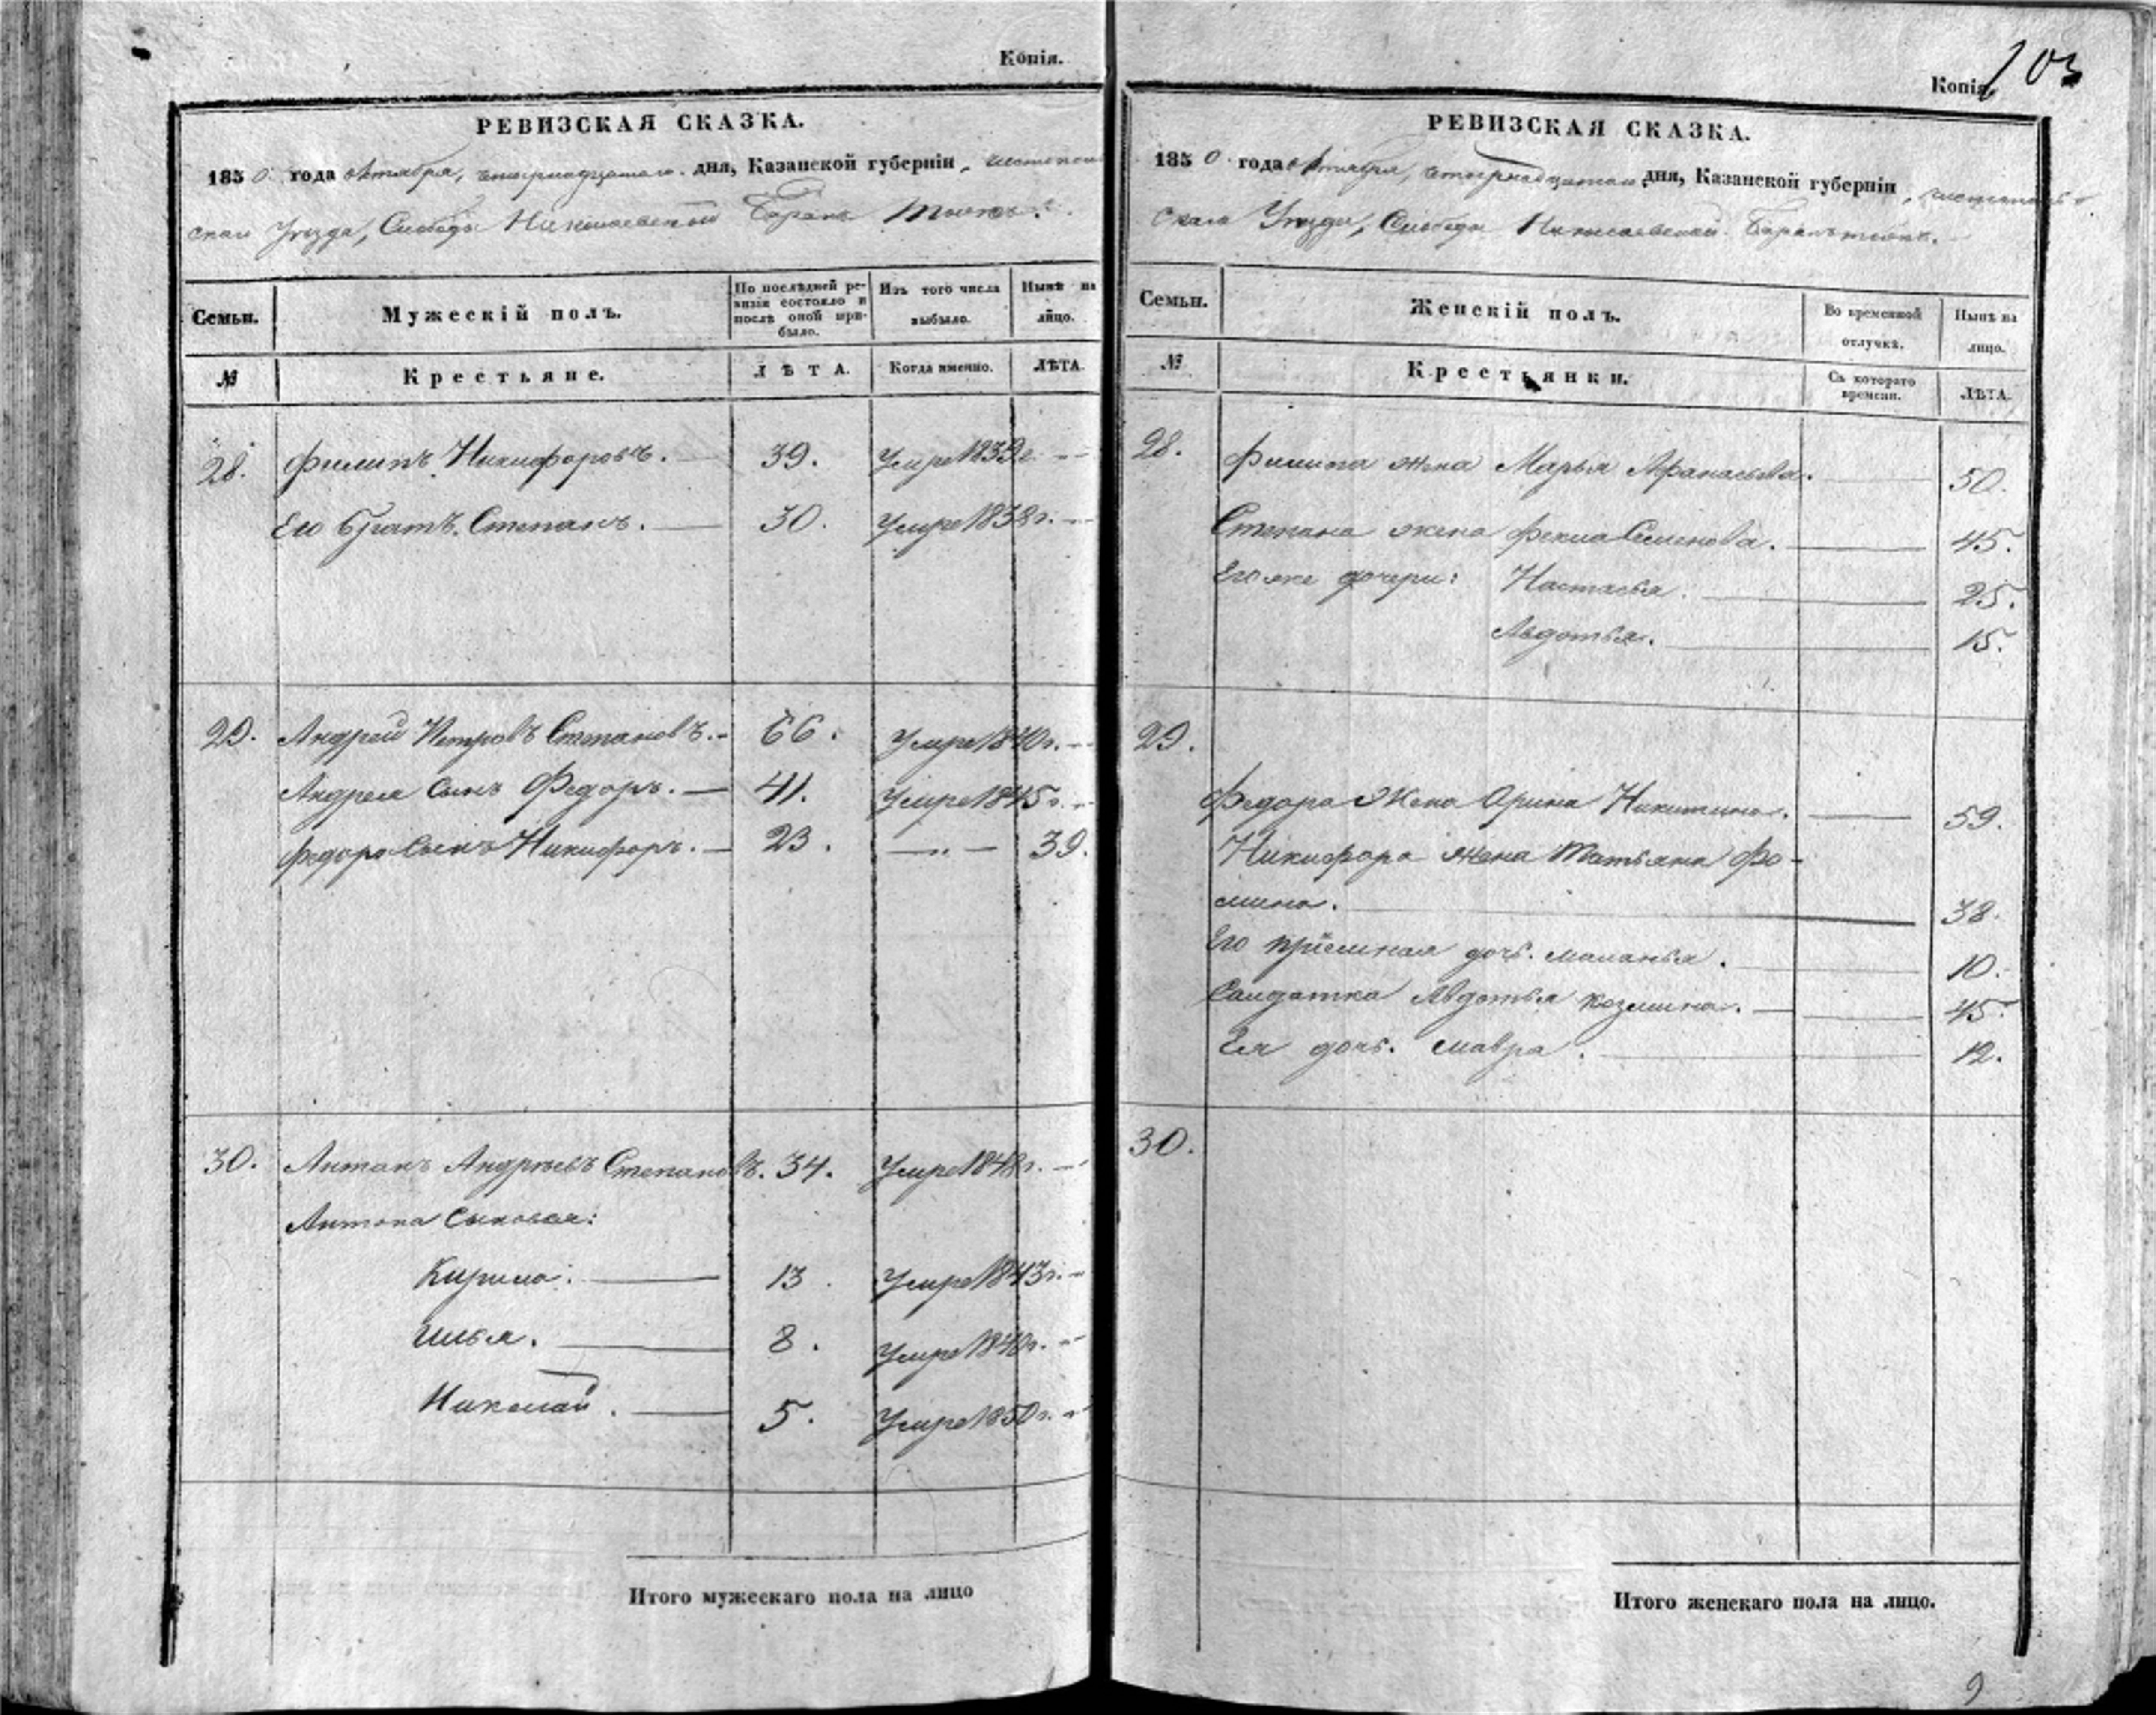 Копія.
РЕВИЗСКАЯ СКАЗКА.
1850 года октября, дня, Казанской губерніи, чистополь
скаго Уѣзда, Слободы Николаевской Баранъ тожъ.
Семьи. Мужескій полъ. По послѣдней ревизіи состояло и послѣ оной прибыло. Изъ того числа выбыло. Нынѣ на лицо.
№ Крестьяне. ЛѢТА. Когда именно. ЛѢТА.
28. Филипъ Никифоровъ. 39. Умре 1839 г.
Его братъ Степанъ. 30. Умре 1838 г.
29. Андрей Петровъ Степановъ. 66. Умре 1840 г.
Андрея сынъ Федоръ. 41. Умре 1845 г.
Федора сынъ Никифоръ. 23. — „ — 39.
30. Антонъ Андреевъ Степановъ. 34. Умре 1848 г.
Антона сыновья:
Кирила. 13. Умре 1843 г.
Илья. 8. Умре 1840 г.
Николай. 5. Умре 1850 г.
Итого мужескаго пола на лицо
103
Копія.
РЕВИЗСКАЯ СКАЗКА.
1850 года октября, дня, Казанской губерніи, чистополь
скаго Уѣзда, Слободы Николаевской Баранъ тожъ.
Семьи. Женскій полъ. Во временной отлучкѣ. Нынѣ на лицо.
№ Крестьянки. Съ котораго времени. ЛѢТА.
28. Филипа жена Марья Афанасьева. 50.
Степана жена Фекла Семенова. 45.
Его же дочери: Настасья. 25.
Авдотья. 15.
29.
Федора жена Орина Никитина. 59.
Никифора жена Татьяна Фо-
мина. 38.
Его пріемная дочь. Маланья. 10.
Солдатка Авдотья Козмина. 45.
Ея дочь. Мавра. 12.
30.
Итого женскаго пола на лицо.
9